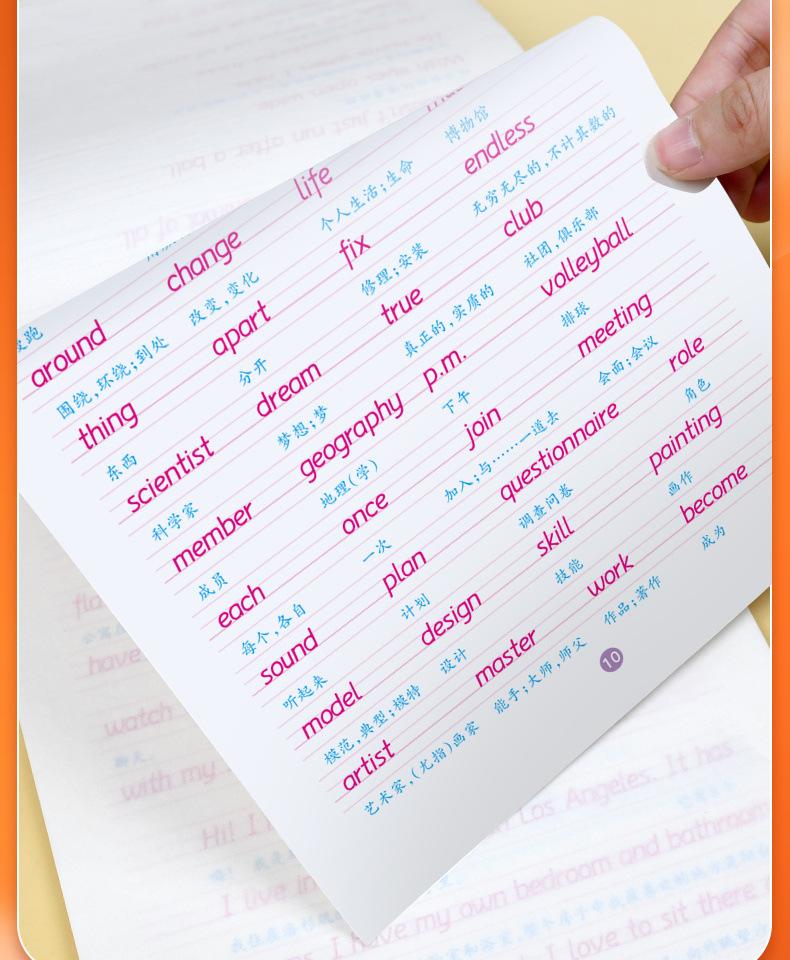 around change life
围绕,环绕;到处 改变,变化 个人生活;生命 博物馆
thing apart fix endless
东西 分开 修理;安装 无穷无尽的,不计其数的
scientist dream true club
科学家 梦想;梦 真正的,实质的 社团,俱乐部
member geography p.m. volleyball
成员 地理(学) 下午 排球
each once join meeting
每个,各自 一次 加入;与……一道去 会面;会议
sound plan questionnaire role
听起来 计划 调查问卷 角色
model design skill painting
模范,典型;模特 设计 技能 画作
artist master work become
艺术家,(尤指)画家 能手;大师,师父 作品;著作 成为
10
have
watch
with my
Hi! Los Angeles. It has
I live in have my own bedroom and bathroom
I love to sit there